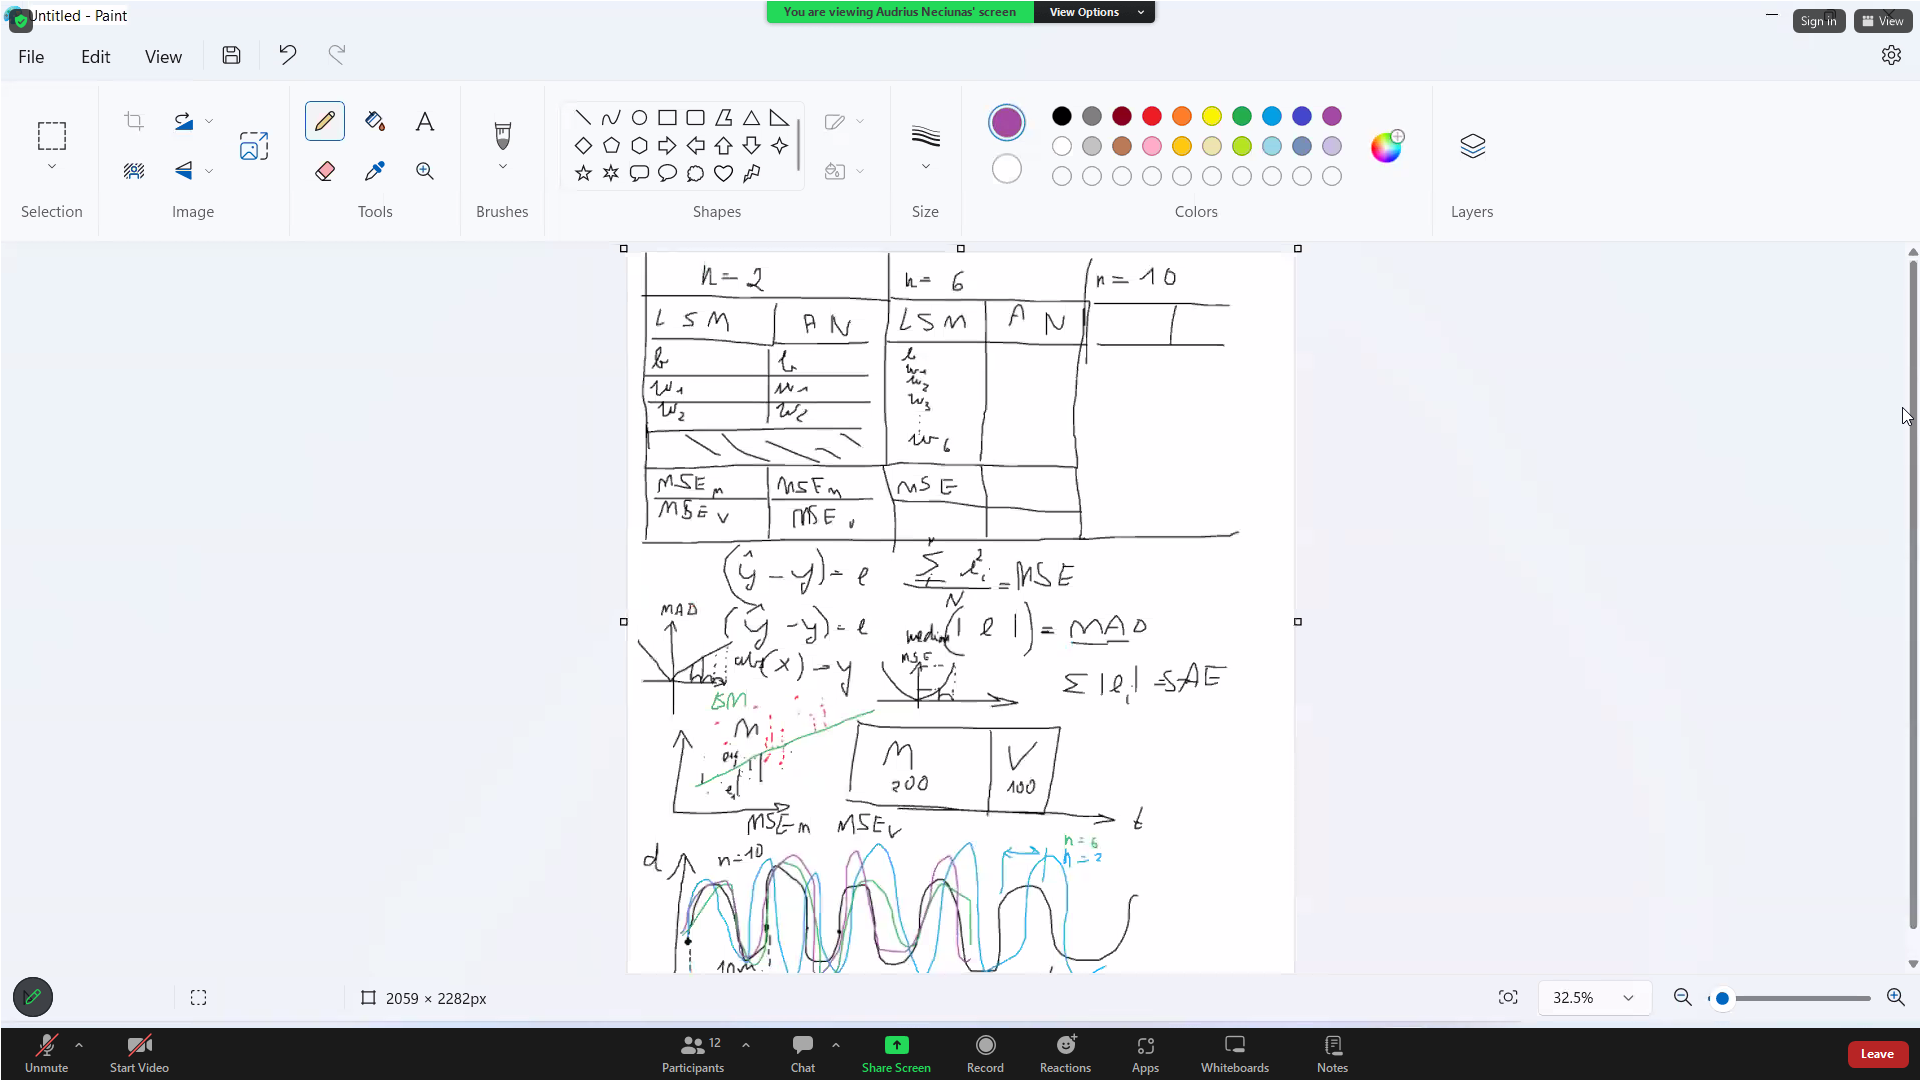 Untitled - Paint
You are viewing Audrius Neciunas' screen
View Options
Sign in
View
File
Edit
View
Selection
Image
Tools
Brushes
Shapes
Size
Colors
Layers
n = 2
n = 6
n = 10
LSM
AN
LSM
AN
b
b
b
w1
w1
w1
w2
w2
w2
w3
w6
MSE m
MSE m
MSE
MSE v
MSE v
(ŷ - y) = e
Σ e²i / N = MSE
MAD
(ŷ - y) = e
median (| e |) = MAD
abs(x) = y
MSE
Σ |ei| = SAE
LSM
M
e1
M
200
V
100
MSE m
MSE v
t
d
n=10
n = 6
n = 2
2059 × 2282px
32.5%
Unmute
Start Video
Participants
12
Chat
Share Screen
Record
Reactions
Apps
Whiteboards
Notes
Leave